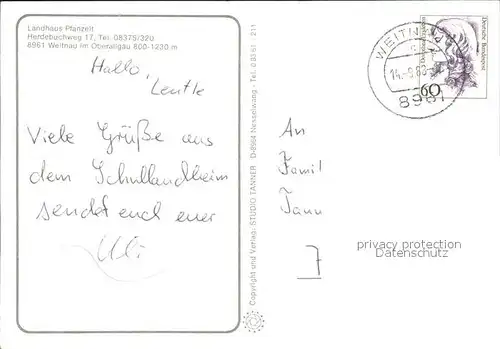 Landhaus Pfanzelt
Herdebuchweg 17, Tel. 08375/320
8961 Weitnau im Oberallgäu 800-1230 m
Hallo,
Leutle
Viele Grüße aus
dem Schullandheim
sendet euch euer
Uli
Copyright und Verlag: STUDIO TANNER D-8964 Nesselwang - Tel. 08361 211
WEITNAU
8961
Deutsche Bundespost
60
An
Famil
Tann
privacy protection
Datenschutz